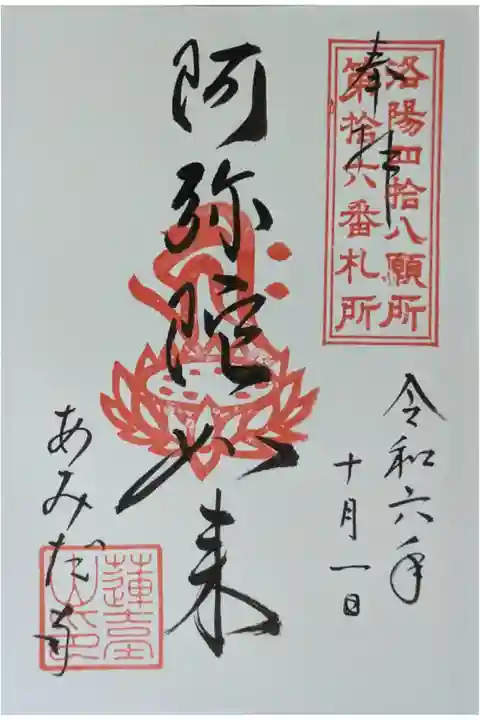 洛陽四拾八願所
第拾六番札所
奉拝
令和六年
十月一日
阿弥陀如来
あみだ寺
蓮臺
山印